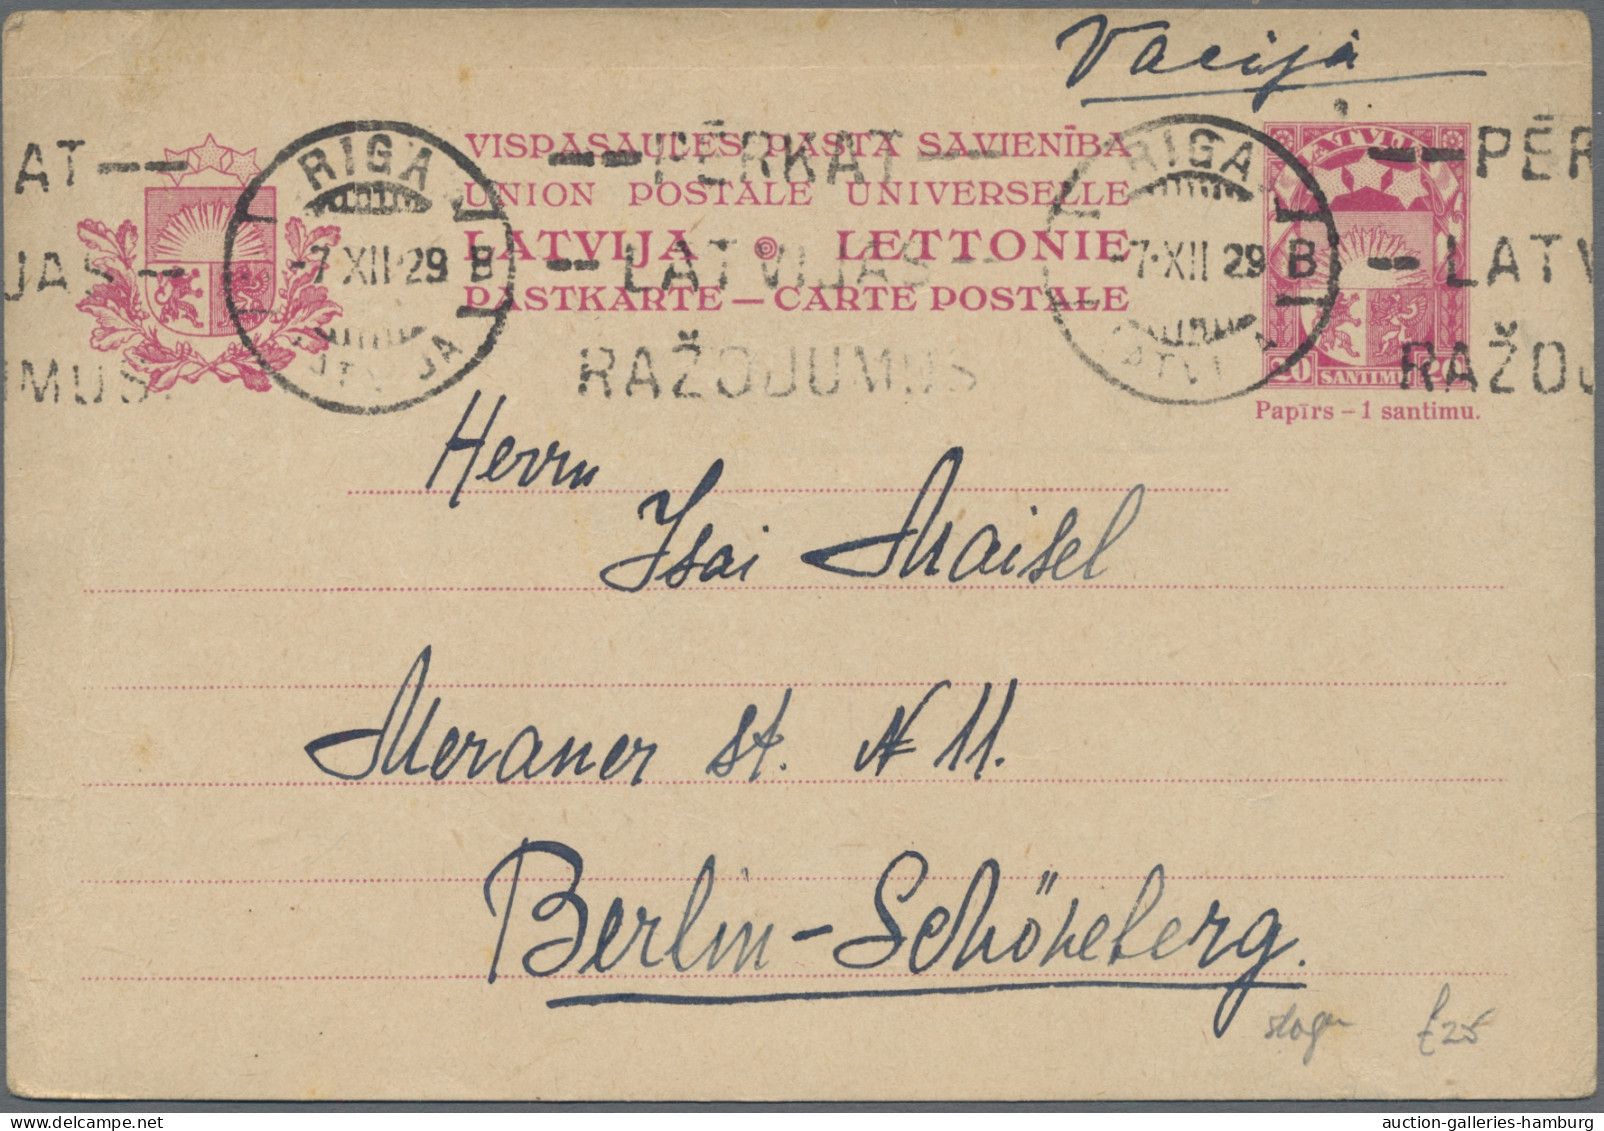 Vācijā
VISPASAULES PASTA SAVIENĪBA
UNION POSTALE UNIVERSELLE
LATVIJA LETTONIE
PASTKARTE — CARTE POSTALE
AT —
JAS —
UMUS
RIGA
-7 XII 29 B
LATVIJA
— PĒRKAT —
— LATVIJAS —
RAŽOJUMUS
RIGA
-7·XII 29 B
LATVIJA
— PĒR
— LATV
RAŽOJ
LATVIJA
20 SANTIMU 20
Papīrs – 1 santimu.
Herrn
Isai Maisel
Meraner st. N 11.
Berlin-Schöneberg.
slogan £25
auction-galleries-hamburg